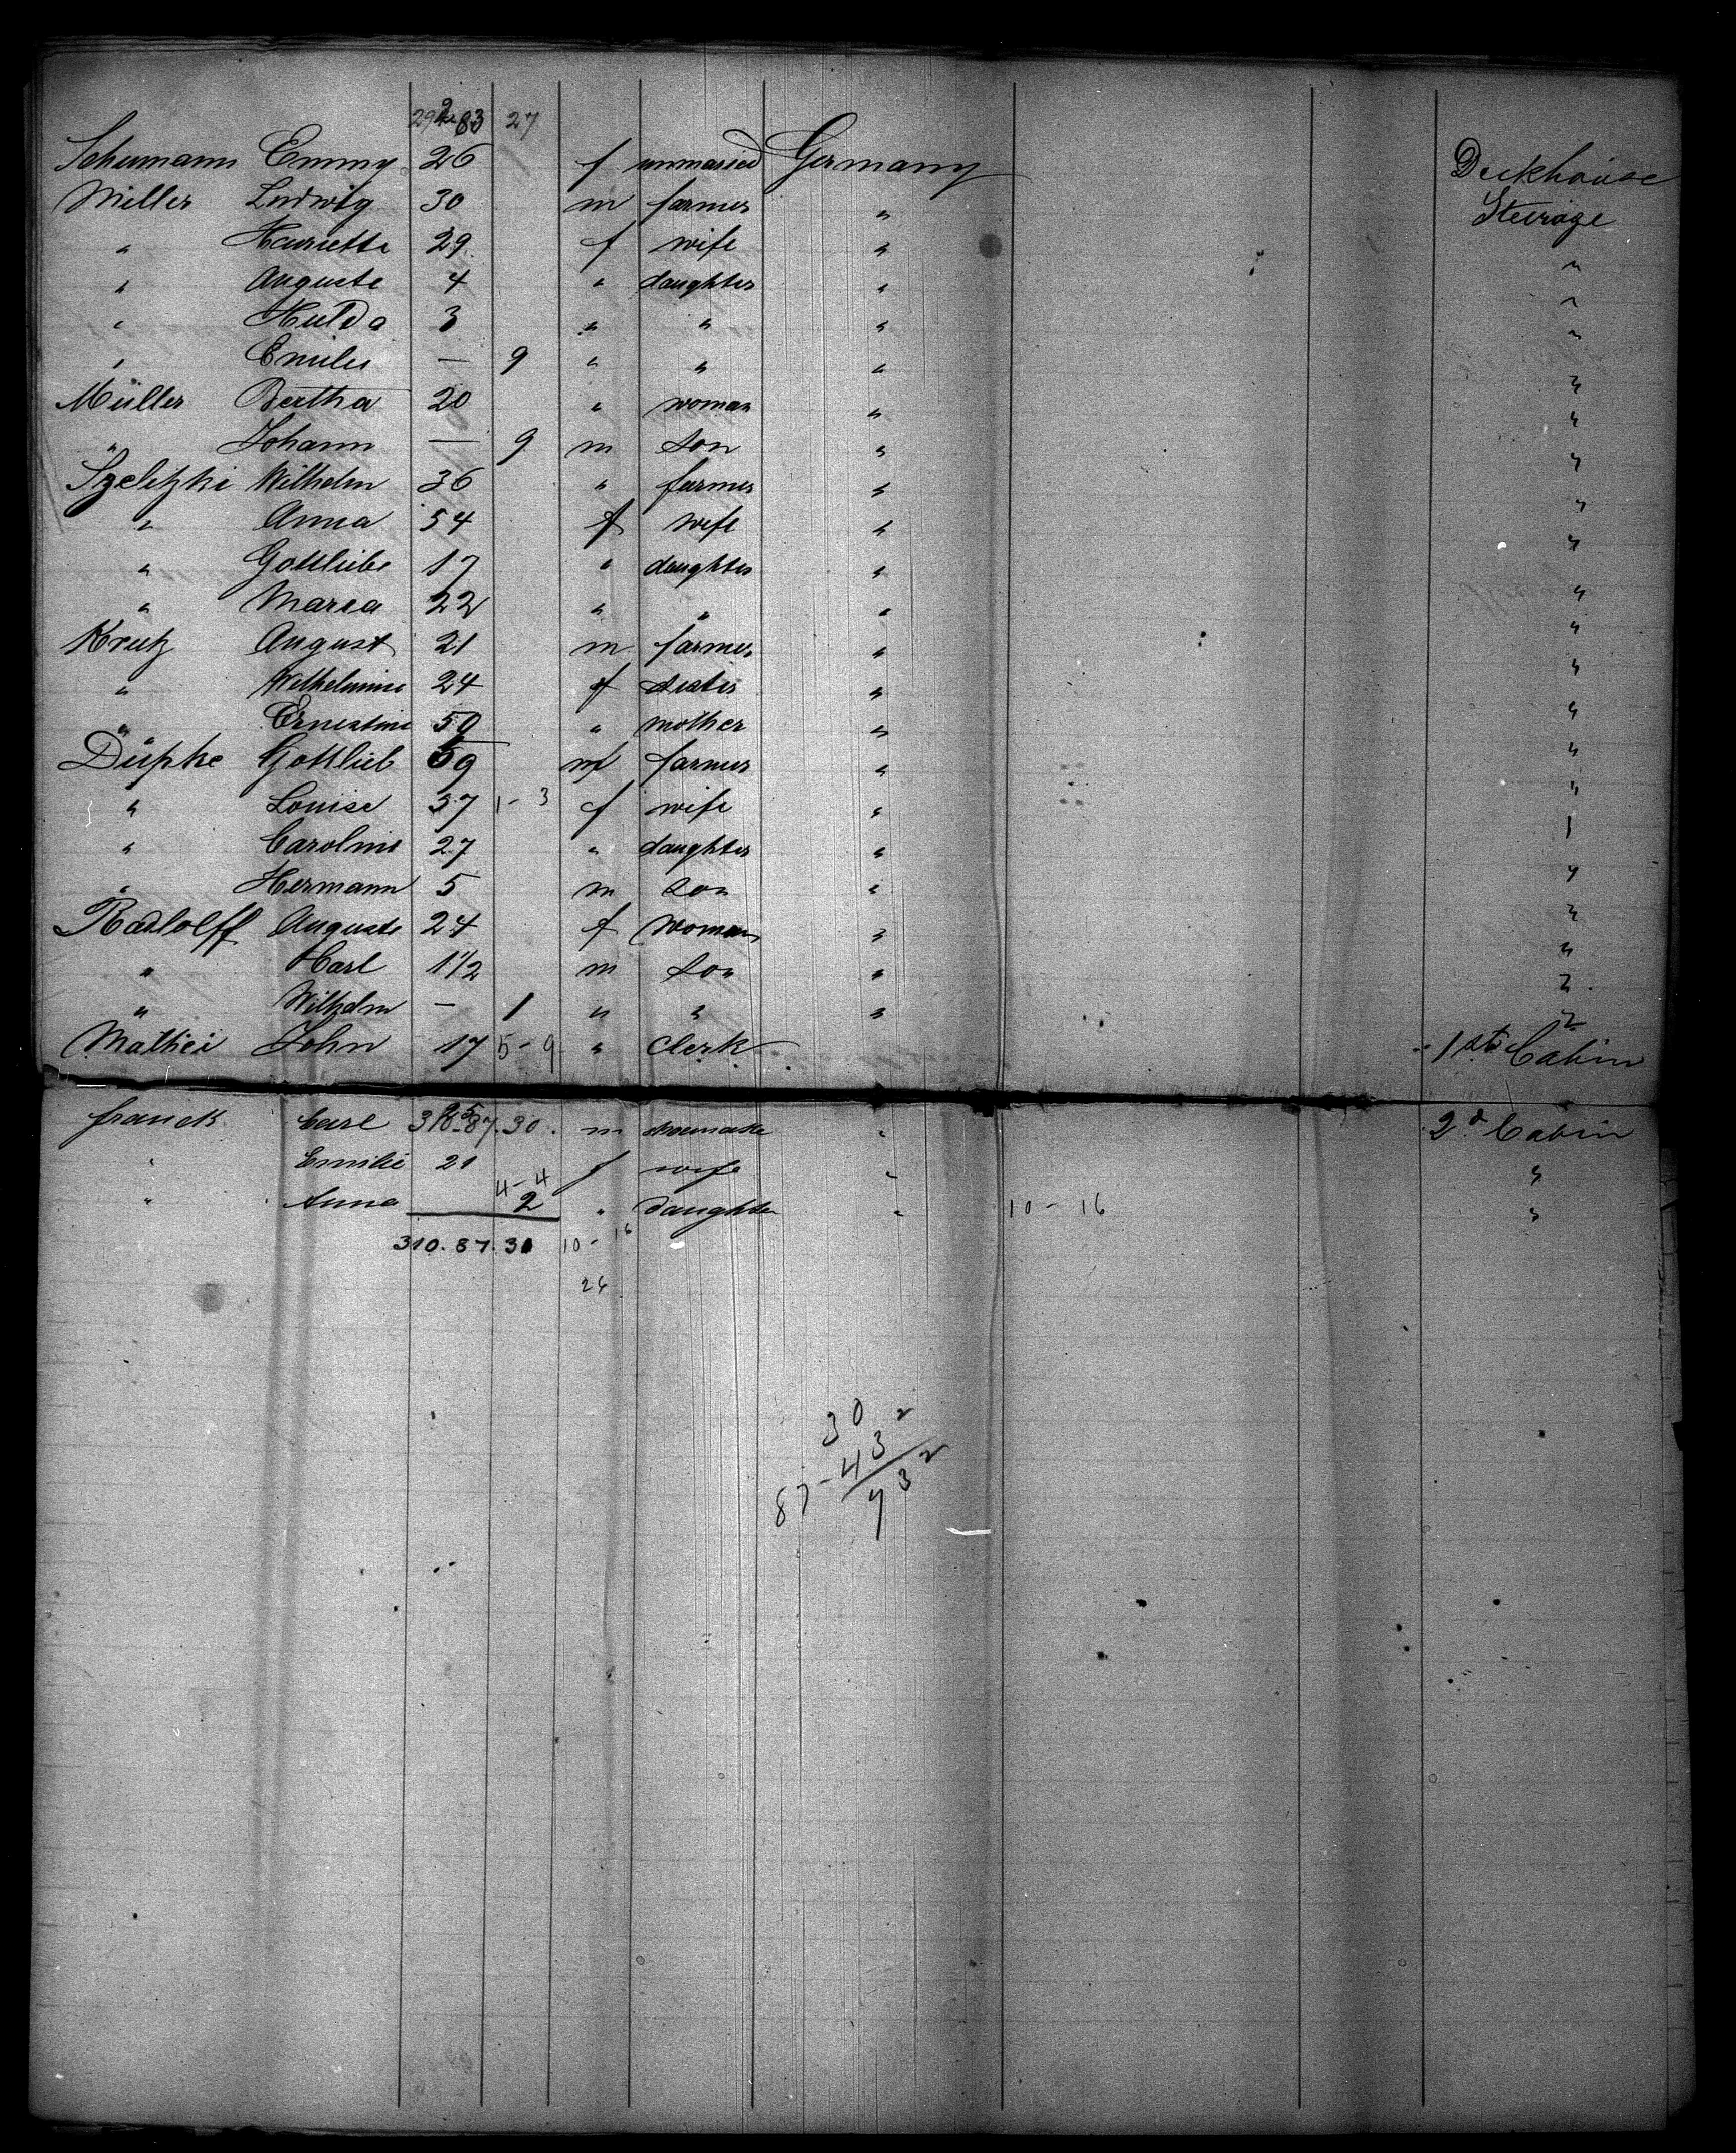 83 27
Schumann Emmy 26 f unmaried Germany Deckhouse
Müller Ludwig 30 m farmer " Steerage
" Henriette 29 f wife " "
" Auguste 4 " daughter " "
" Hulda 3 " " " "
" Emilie — 9 " " " "
Müller Bertha 20 " woman " "
" Johann — 9 m son " "
Szelitzki Wilhelm 36 " farmer " "
" Anna 54 f wife " "
" Gottliebe 17 " daughter " "
" Maria 22 " " " "
Krutz August 21 m farmer " "
" Wilhelmine 24 f sister " "
" Ernestine 50 " mother " "
Düpke Gottlieb 59 m farmer " "
" Louise 37 1-3 f wife " "
" Caroline 27 " daughter " "
" Hermann 5 m son " "
Radloff Auguste 24 f woman " "
" Karl 1 1/2 m son " "
" Wilhelm — 1 " " " "
Mathei John 17 5-9 " Clerk 1st Cabin
Franck Carl 30 m shoemake " 2d Cabin
" Emilie 21 f wife " "
4-4
" Anna 2 " daughter " 10-16 "
310.87.31 10-16
26
30 2
43
87- 73 2